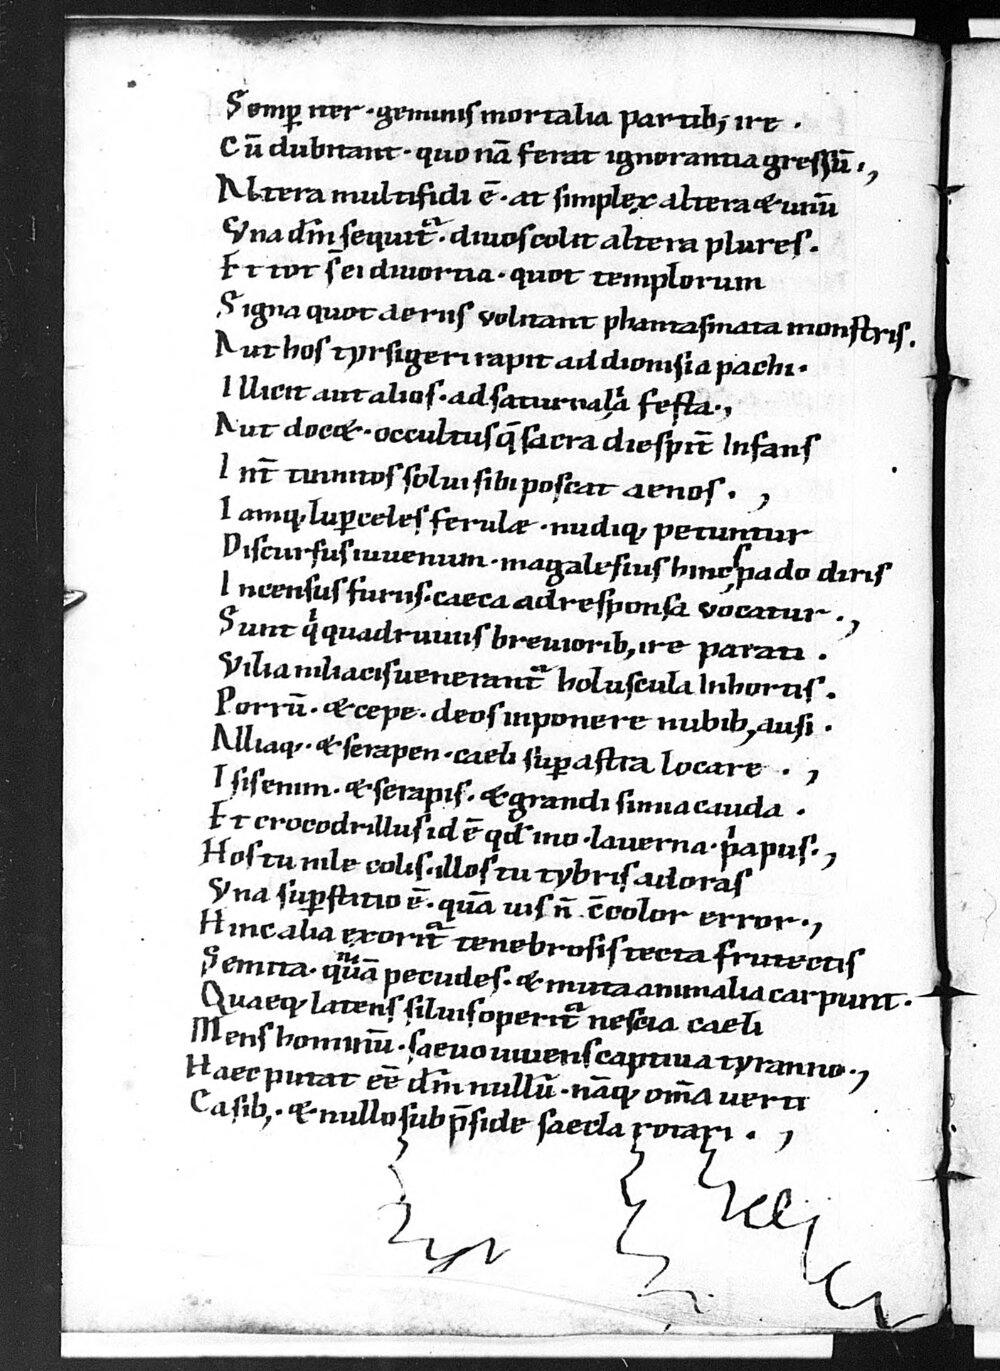 Semꝑ iter · geminis mortalia partib; ire ·
Cū dubitant · quo nā ferat ignorantia gressū ·,
Altera multifidi ē · at simplex altera & unū
Vna dm̄ sequit᷑ · diuos colit altera plures ·
Et tot s̄ ei diuortia · quot templorum
Signa quot aeriis volitant phantasmata monstris.
Aut hos tyrsigeri rapit ad dionisia pachi ·
Illicit aut alios · ad saturnalia festa ·,
Aut docet · occultus q̄ sacra diespit̄ Infans
Int̄ tinnitos solui sibi poscat aenos · ,
Iamq; luꝑceles ferulæ · nudiq; petuntur
Discursus iuuenum · magalesius hinc spado diris
Incensus furiis · caeca ad responsa vocatur · ,
Sunt qͥ quadruuiis breuiorib; ire parati ·
Vilia niliacis uenerant᷑ holuscula In hortis ·
Porrū · & cepe · deos inponere nubib; ausi ·
Alliaq; · & serapen · caeli suꝑ astra locare · ,
Isis enim · & serapis · & grandi simia cauda ·
Et crocodrillus id ē qd̄ ino · lauerna · pͥapus ·,
Hos tu nile colis · illos tu tybris adoras
Vna suꝑstitio ē · quā uis n̄ c̄color error ·,
Hinc alia exorit᷑ tenebrosis tecta frutectis
Semita · quā pecudes · & muta animalia carpunt ·
Quaeq; latens siluis operit᷑ nescia caeli
Mens hominū · saeuo uiuens captiua tyranno ·,
Haec putat ēē dm̄ nullū · nāq; om̄a uerti
Casib; · & nullo sub p̄side saecla rotari · ,